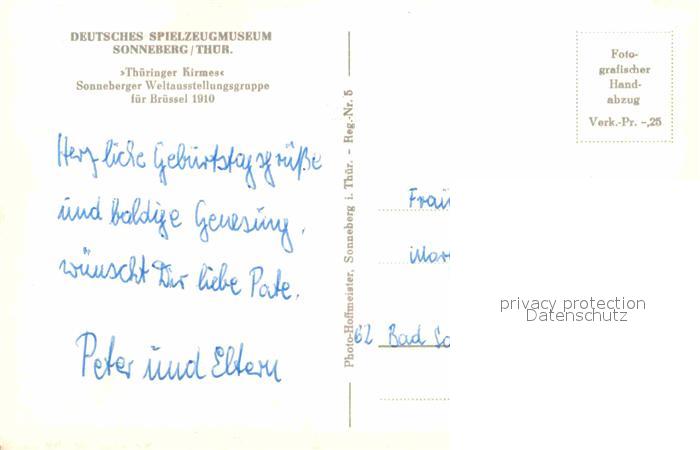 DEUTSCHES SPIELZEUGMUSEUM
SONNEBERG/THÜR.
»Thüringer Kirmes«
Sonneberger Weltausstellungsgruppe
für Brüssel 1910
Herzliche Geburtstagsgrüße
und baldige Genesung,
wünscht Dir liebe Pate,
Peter und Eltern
Photo-Hoffmeister, Sonneberg i. Thür. - Reg.-Nr. 5
Foto-
grafischer
Hand-
abzug
Verk.-Pr. -,25
62 Bad
privacy protection
Datenschutz